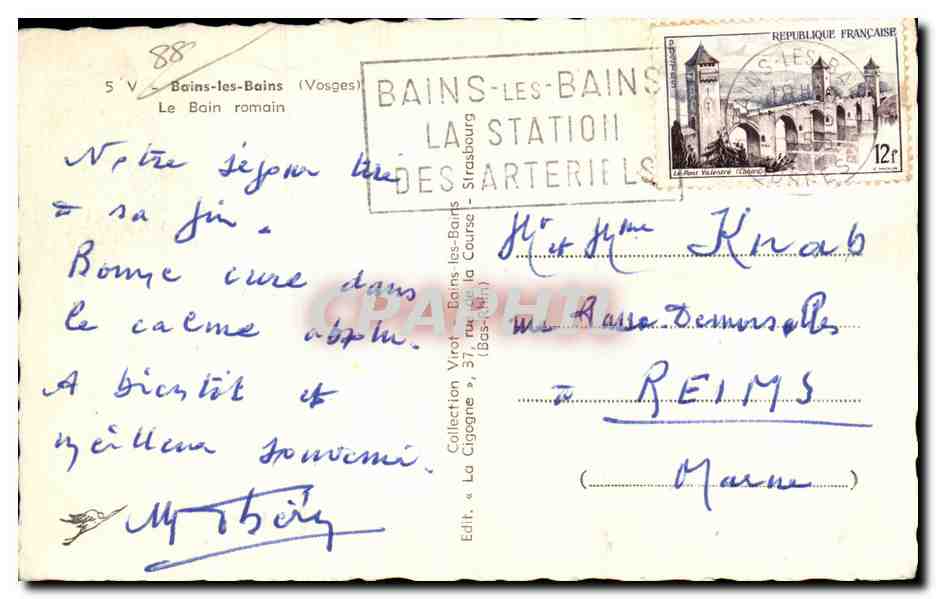 88
5 V - Bains-les-Bains (Vosges)
Le Bain romain
BAINS-LES-BAINS
LA STATION
DES ARTERIELS
REPUBLIQUE FRANÇAISE
12f
Le Pont Valentré (Cahors)
Notre séjour tire
à sa fin.
Bonne cure dans
le calme absolu.
A bientôt et
meilleur souvenir.
M Théry
Collection Virot - Bains-les-Bains
Edit. « La Cigogne », 37, rue de la Course - Strasbourg
(Bas-Rhin)
CPAPHIL
Mr et Mme Knab
rue Passe Demoiselles
à REIMS
(Marne)